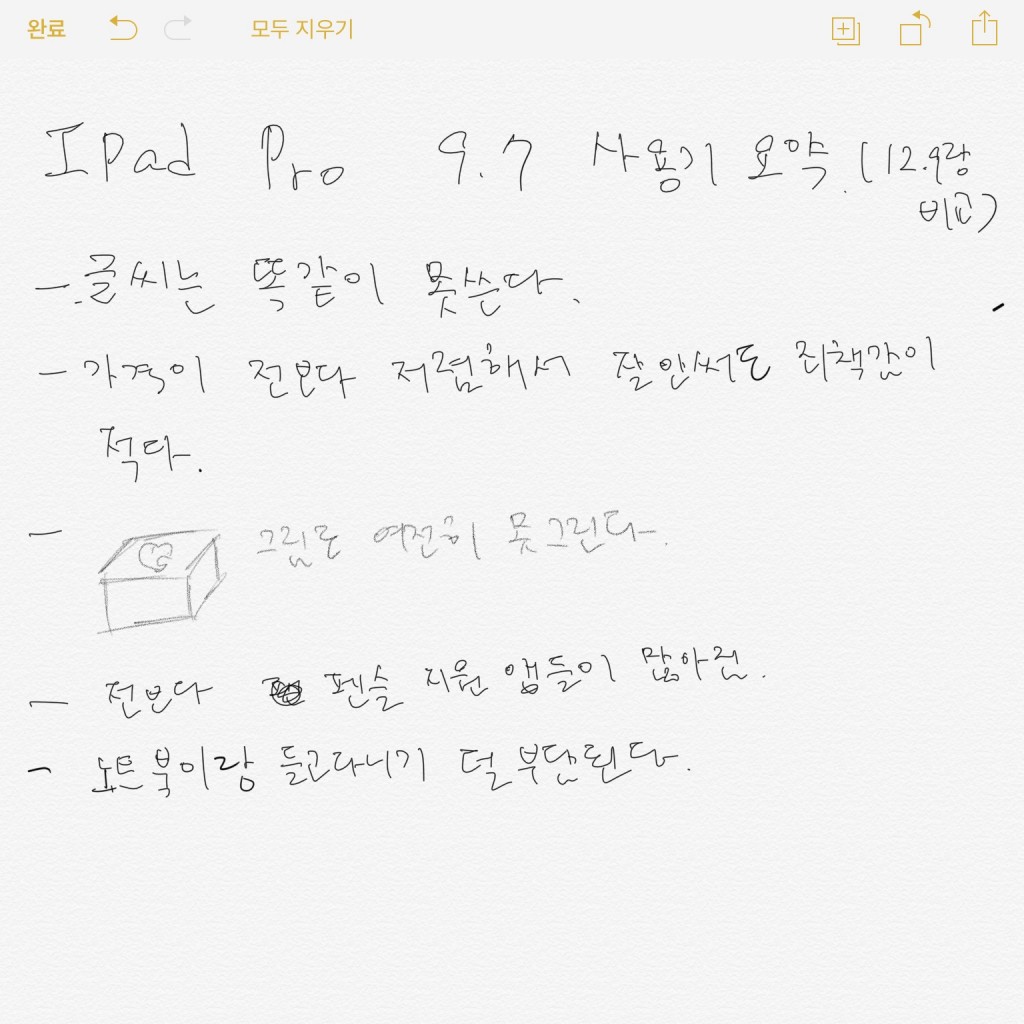 완료 모두 지우기
IPad Pro 9.7 사용기 요약. (12.9랑
비교)
- 글씨는 똑같이 못쓴다.
- 가격이 전보다 저렴해서 잘안써도 죄책감이
적다.
- 그림도 여전히 못그린다.
- 전보다 펜슬 지원 앱들이 많아짐.
- 노트북이랑 들고다니기 덜 부담된다.